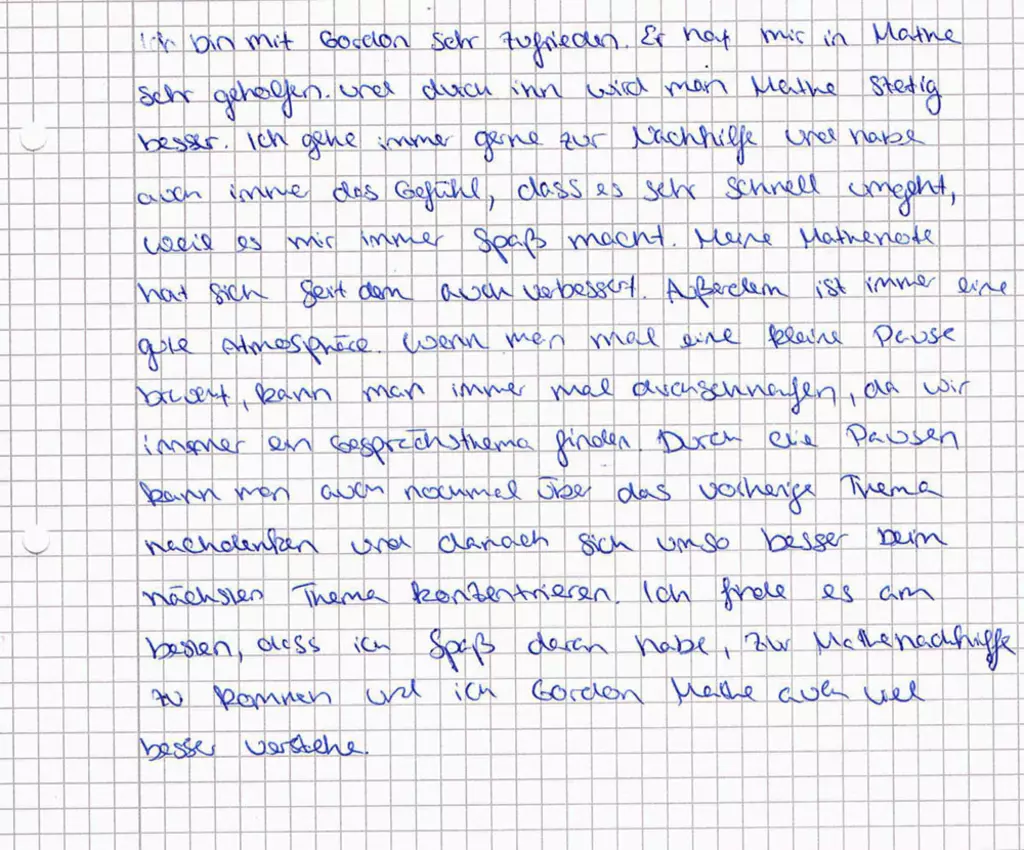 Ich bin mit Gordon sehr zufrieden. Er hat mir in Mathe
sehr geholfen. und durch ihn wird man Mathe stetig
besser. Ich gehe immer gerne zur Nachhilfe und habe
auch imme das Gefühl, dass es sehr schnell umgeht,
weil es mir immer Spaß macht. Meine Mathenote
hat sich seit dem auch verbessert. Außerdem ist immer eine
gute Atmosphäre. Wenn man mal eine kleine Pause
braucht, kann man immer mal durchschnaufen, da wir
immer ein Gesprächsthema finden. Durch die Pausen
kann man auch nochmal über das vorherige Thema
nachdenken und danach sich umso besser beim
nächsten Thema konzentrieren. Ich finde es am
besten, dass ich Spaß daran habe, zur Mathenachhilfe
zu kommen und ich Gordon Mathe auch viel
besser verstehe.